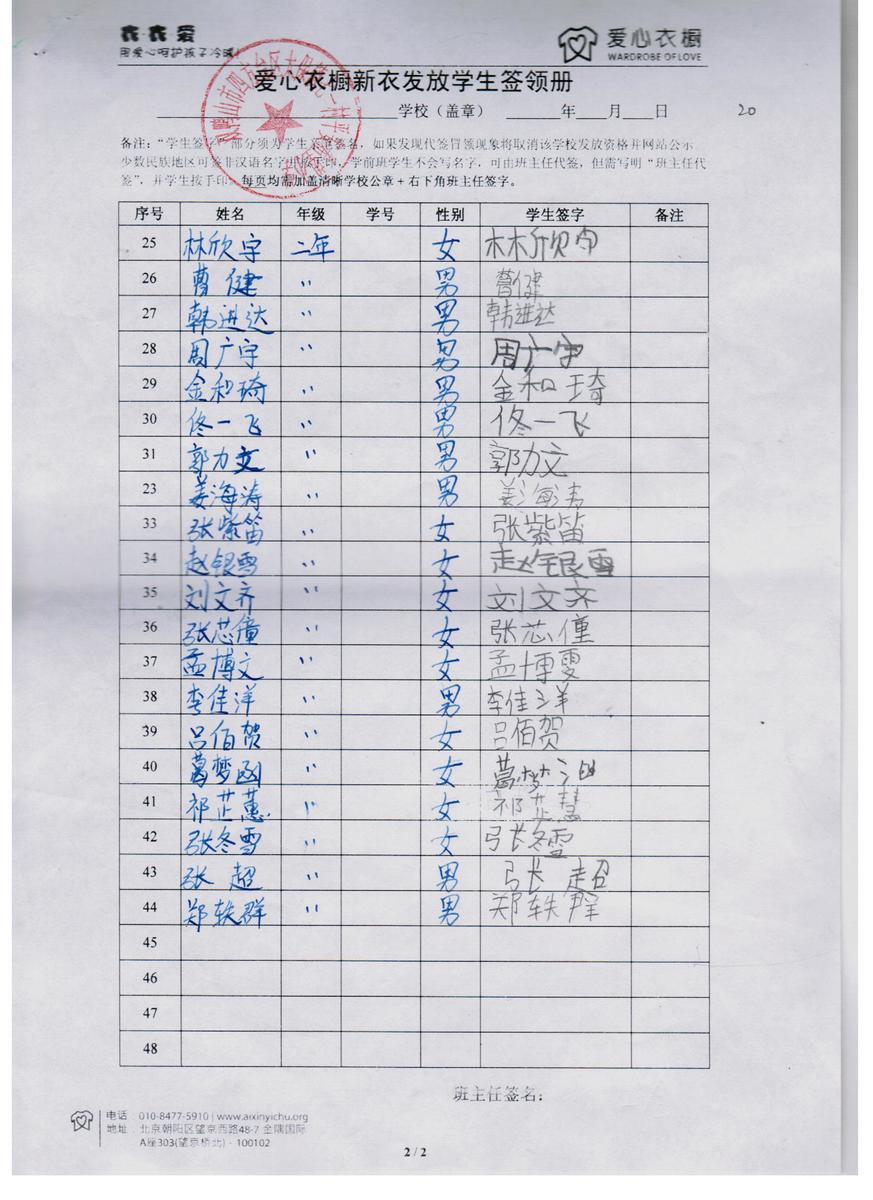 衣衣爱
用爱心呵护孩子冷暖!
爱心衣橱
WARDROBE OF LOVE
爱心衣橱新衣发放学生签领册
学校（盖章） 年 月 日 20
备注：“学生签字”部分须为学生亲笔签名，如果发现代签冒领现象将取消该学校发放资格并网站公示。
少数民族地区可签非汉语名字并按手印。学前班学生不会写名字，可由班主任代签，但需写明“班主任代
签”，并学生按手印。每页均需加盖清晰学校公章+右下角班主任签字。
序号 姓名 年级 学号 性别 学生签字 备注
25 林欣宇 二年 女 林欣宇
26 曹健 〃 男 曹健
27 韩进达 〃 男 韩进达
28 周广宇 〃 男 周广宇
29 金和琦 〃 男 金和琦
30 佟一飞 〃 男 佟一飞
31 郭力文 〃 男 郭力文
23 姜海涛 〃 男 姜海涛
33 张紫笛 〃 女 张紫笛
34 赵银雪 〃 女 赵银雪
35 刘文齐 〃 女 刘文齐
36 张芯僮 〃 女 张芯僮
37 孟博文 〃 女 孟博雯
38 李佳洋 〃 男 李佳洋
39 吕佰贺 〃 女 吕佰贺
40 葛梦函 〃 女 葛梦涵
41 祁芷蕙 〃 女 祁芷慧
42 张冬雪 〃 女 张冬雪
43 张超 〃 男 张超
44 郑轶群 〃 男 郑轶群
45
46
47
48
班主任签名：
电话：010-8477-5910 | www.aixinyichu.org
地址：北京朝阳区望京西路48-7 金隅国际
A座303(望京桥北)·100102
2 / 2